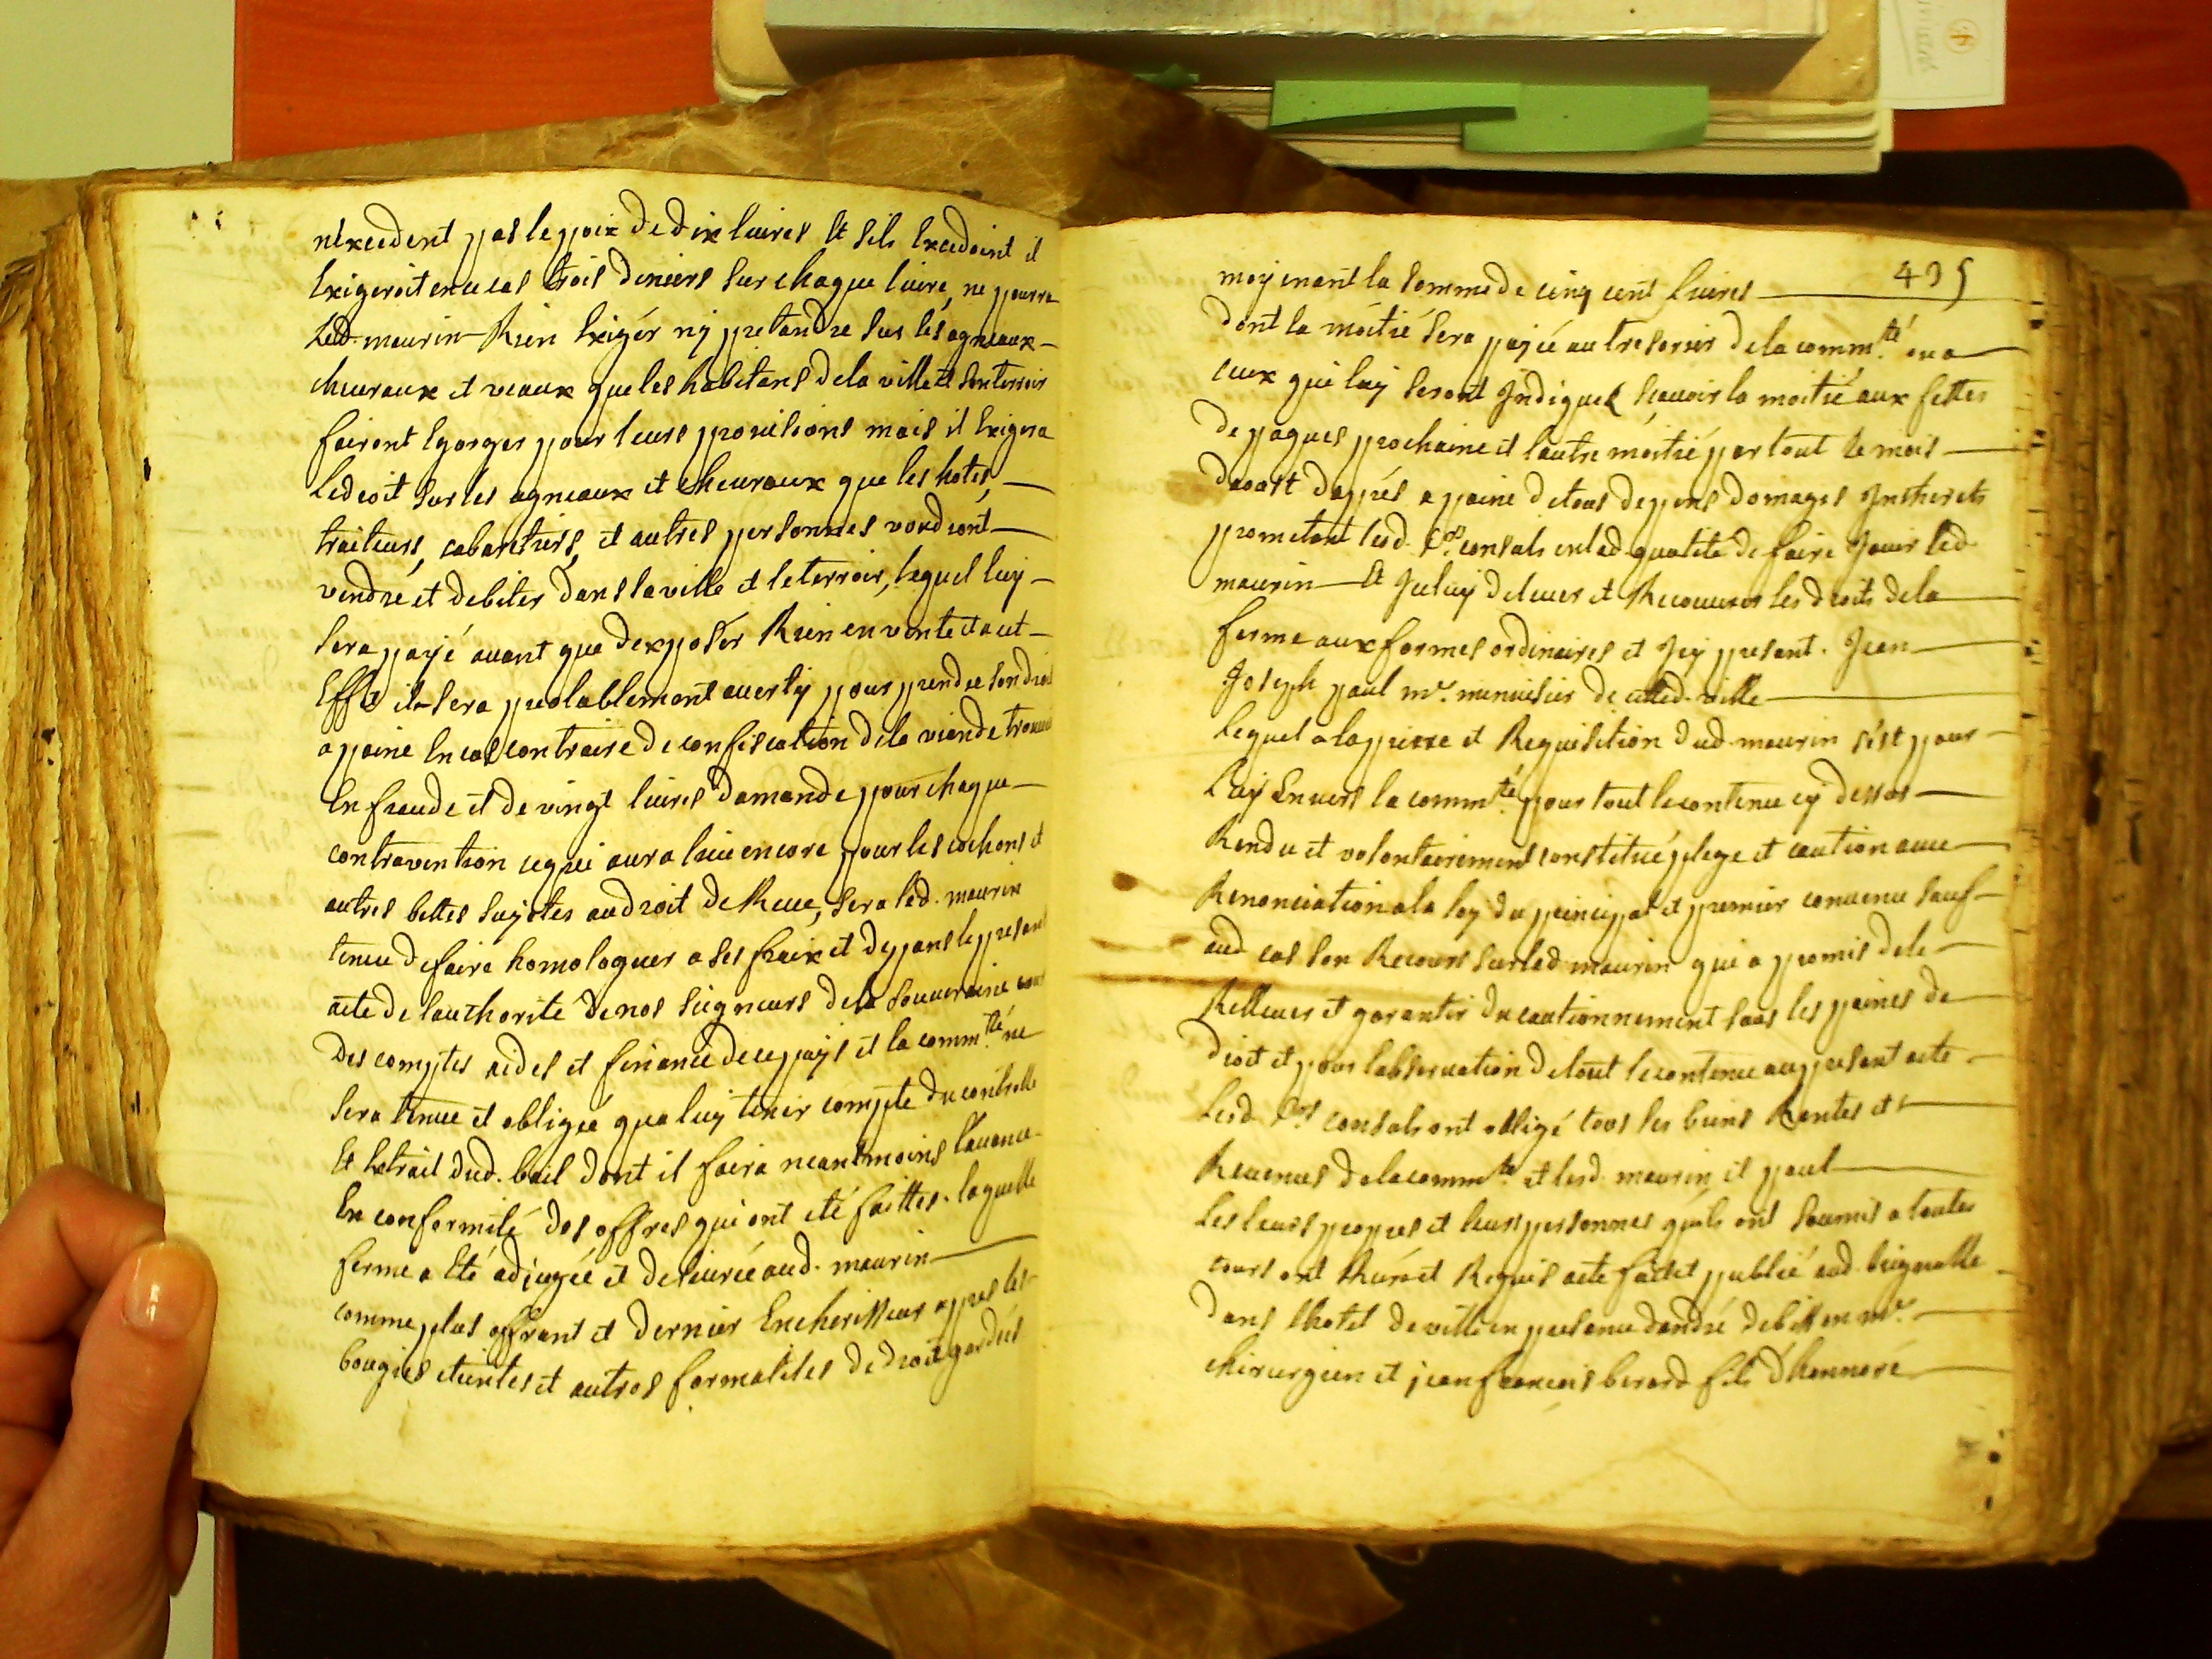 nexcedent pas le poix de dix livres et sils excedoint il
exigeroit en ce cas trois deniers sur chaque livre, ne pourra
led. maurin Rien exigér ny pretandre sur les agneaux
chevraux et veaux que les habitans de la ville et son terroir
fairont egorger pour leurs provisions mais il exigera
le droit sur les agneaux et chevraux que les hotes,
traiteurs, cabaretiers, et autres personnes voudront
vendre et debiter dans la ville et le terroir, lequel luy
sera payé avant que dexposér Rien en vente et a cet
effet il sera prealablement averty pour prendre son droit
a paine en cas contraire de confiscation de la viande trouvée
en fraude et de vingt livres damande pour chaque
contravention ce qui aura lieu encore pour les cochons et
autres bettes sujettes au droit de Reve, sera led. maurin
tenu de faire homologuer a ses fraix et depans le present
acte de lauthorite de nos seigneurs de la souveraine cour
des comptes aides et finance de ce pays et la comm.té ne
sera tenue et obligée qua luy tenir compte du controlle
et extrait dud. bail dont il faira neantmoins lavance
en conformité des offres qui ont eté faittes. laquelle
ferme a eté adjugée et delivrée aud. maurin
comme plus offrant et dernier encherisseur apres les
bougies eteintes et autres formalites de droit gardées
435
moyenant la somme de cinq cent livres
dont la moitié sera payée au tresorier de la comm.té ou a
ceux qui luy seront indiqués sçavoir la moitié aux fettes
de paques prochaine et lautre moitié par tout le mois
daoust dapprés a paine de tous depens domages intherets
prometant lesd. srs. consuls en lad. qualité de faire jouir led.
maurin et celuy de lever et Recouvrer les droits de la
ferme aux formes ordinaires et icy present. Jean
Joseph paul mre. menuisier de cetted. ville
lequel a la priere et Requisition dud. maurin sést pour
luy envers la comm.té pour tout le contenu cy dessus
Rendu et volontairement constitué plege et caution avec
Renonciation a la loy du principal et premier convenu sauf
aud. cas son Recours sur led. maurin qui a promis de le
Rellever et garantir du cautionnement sous les paines de
droit et pour labservation de tout le contenu au present acte
lesd. srs. consuls ont obligé tous les biens Rantes et
Revenus de la comm.té et lesd. maurin et paul
les leurs propres et leurs personnes quils ont soumis a toutes
cours ont Requis acte fait et publié aud. brignolle
dans lhotel de ville en presence dandré debisson mre.
chirurgien et jean françois berard fils dhonnoré